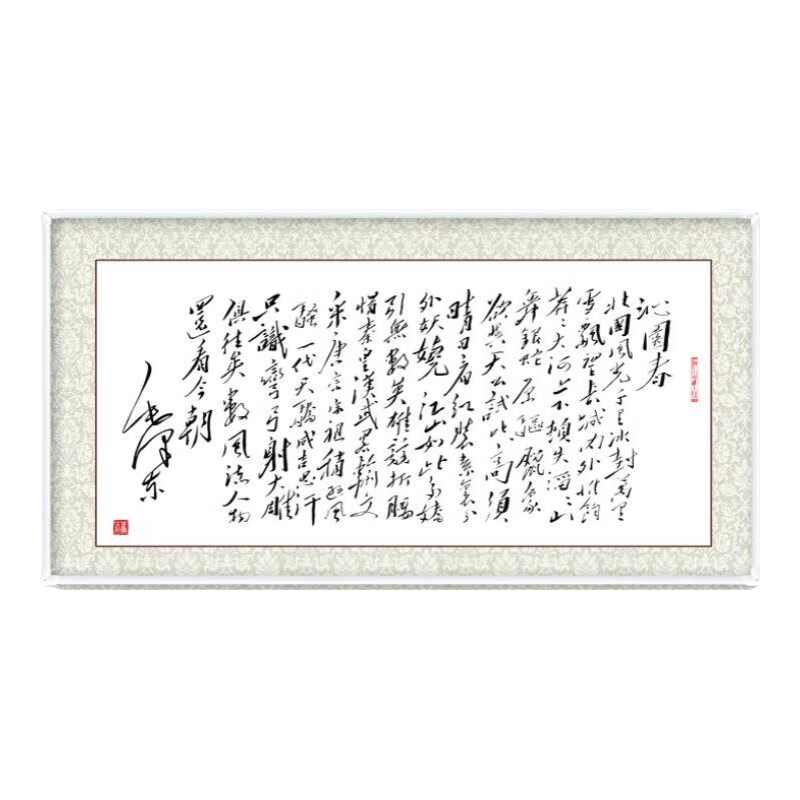 沁園春
北國風光千里冰封萬里
雪飄望長城內外惟餘
莽〻大河上下頓失滔〻山
舞銀蛇原驅臘象
欲與天公試比高須
晴日看紅裝素裹分
外妖嬈江山如此多嬌
引無數英雄競折腰
惜秦皇漢武略輸文
采唐宗宋祖稍遜風
騷一代天驕成吉思汗
只識彎弓射大雕
俱往矣數風流人物
還看今朝
毛澤東